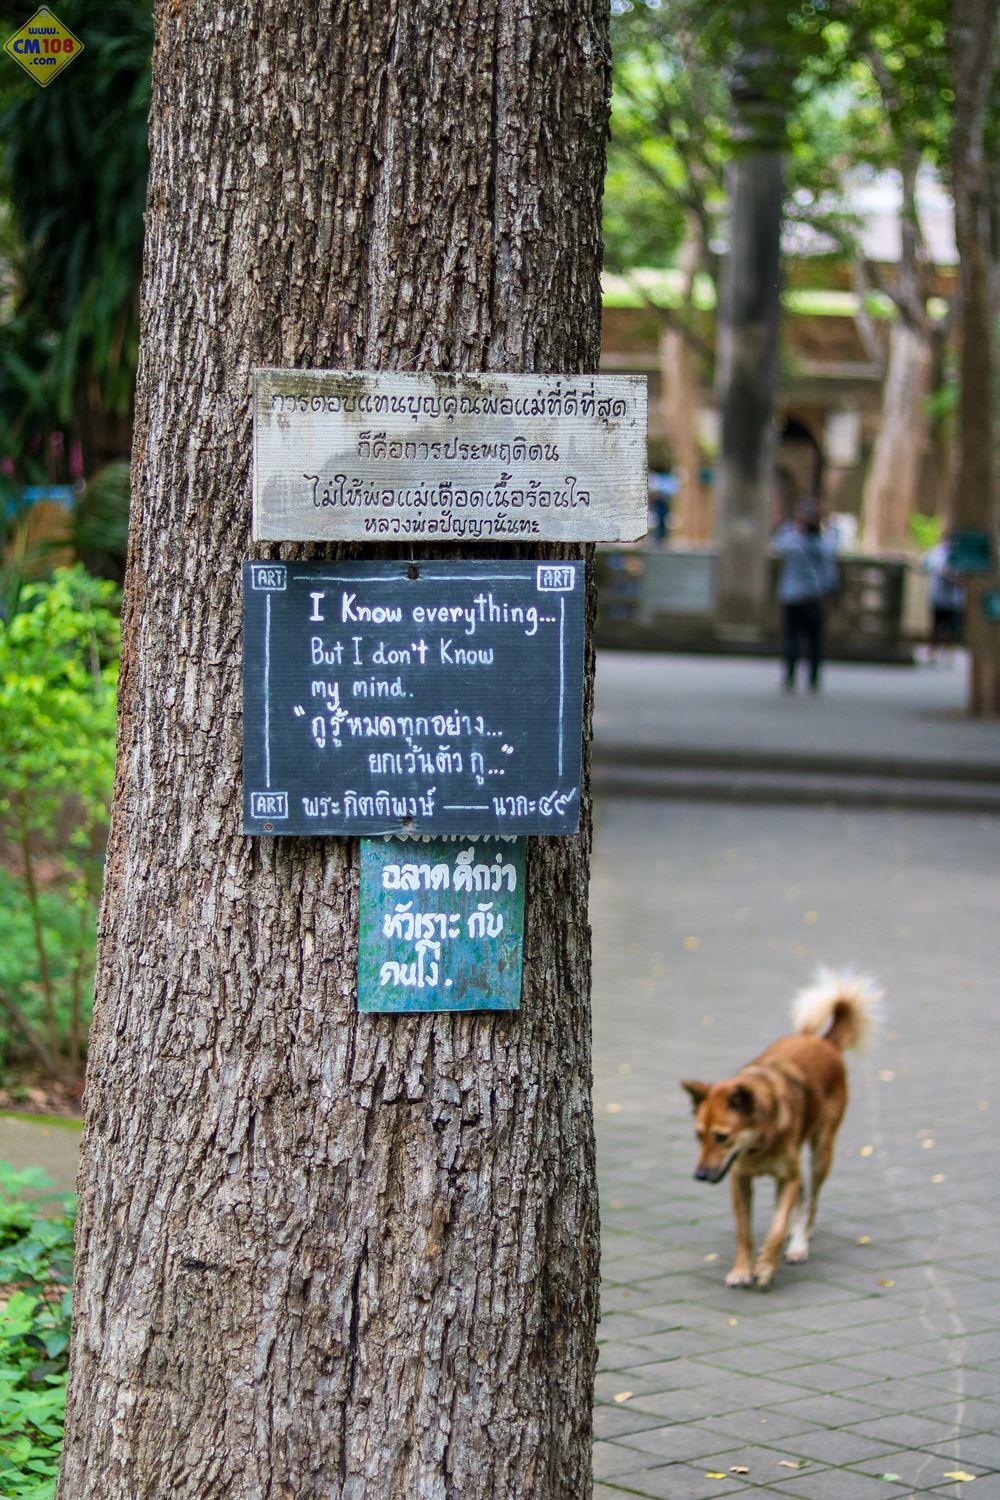 www.
CM108
.com
การตอบแทนบุญคุณพ่อแม่ที่ดีที่สุด
ก็คือการประพฤติตน
ไม่ให้พ่อแม่เดือดเนื้อร้อนใจ
หลวงพ่อปัญญานันทะ
ART ART
I Know everything...
But I don't Know
my mind.
"กูรู้หมดทุกอย่าง...
ยกเว้นตัวกู..."
ART พระกิตติพงษ์ — นวกะ๔๙
ฉลาด ดีกว่า
หัวเราะ กับ
คนโง่.